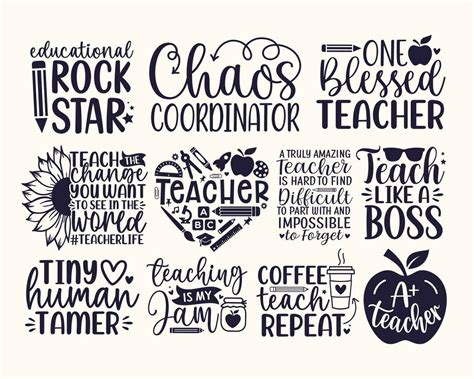 educational
ROCK
STAR
Chaos
COORDINATOR
ONE
Blessed
TEACHER
TEACH THE
change
YOU WANT
TO SEE IN THE
world
#TEACHERLIFE
TEACHER
A B C
A TRULY AMAZING
Teacher
IS HARD TO FIND
Difficult
TO PART WITH AND
IMPOSSIBLE
to Forget
Teach
LIKE A
BOSS
TINY
human
TAMER
teaching
IS MY
Jam
COFFEE
teach
REPEAT
A+
teacher